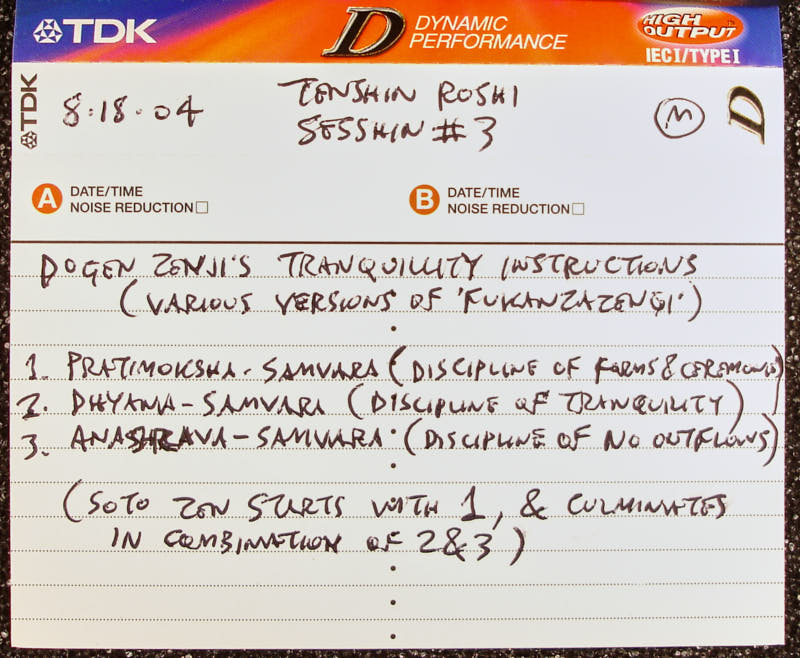 TDK
D DYNAMIC PERFORMANCE
HIGH OUTPUT™
IEC I/TYPE I
TDK
8·18·04
TENSHIN ROSHI
SESSHIN #3
M
D
A DATE/TIME
NOISE REDUCTION
B DATE/TIME
NOISE REDUCTION
DOGEN ZENJI'S TRANQUILLITY INSTRUCTIONS
(VARIOUS VERSIONS OF 'FUKANZAZENGI')
1. PRATIMOKSHA-SAMVARA (DISCIPLINE OF FORMS & CEREMONIES)
2. DHYANA-SAMVARA (DISCIPLINE OF TRANQUILITY)
3. ANASHRAVA-SAMVARA (DISCIPLINE OF NO OUTFLOWS)
(SOTO ZEN STARTS WITH 1, & CULMINATES
IN COMBINATION OF 2&3)